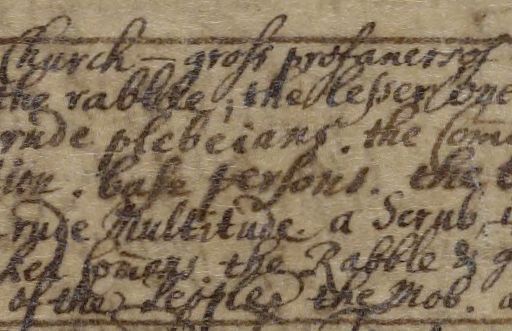 Church – gross profaners of
the rabble, the lesser one
rude plebeians. the Com̄
tion. base persons. the
rude Multitude. a Scrub,
ked com̄ons. the Rabble & g
of the People the Mob. a